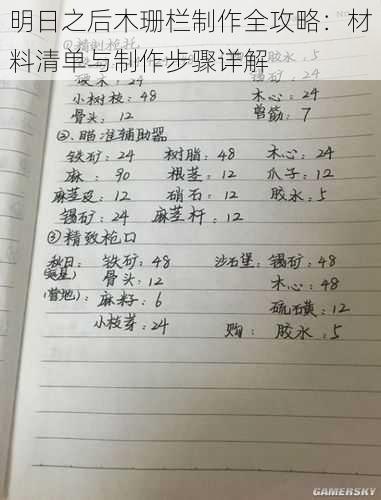 明日之后木珊栏制作全攻略：材
料清单与制作步骤详解
胶水：5
硬木：24
小树枝：48 木心：24
骨头：12 兽筋：7
②.瞄准辅助器
铁矿：24 树脂：48 木心：24
麻：90 根茎：12 爪子：12
麻茎皮：12 硝石：12 胶水：5
锡矿：24 麻茎杆：12
③精致枪口
秋日： 铁矿：48 沙石堡：锡矿：48
骨头：12 木心：48
(营地)：麻籽：6 硫磺：12
小枝芽：24 购：胶水：5
GAMERSKY